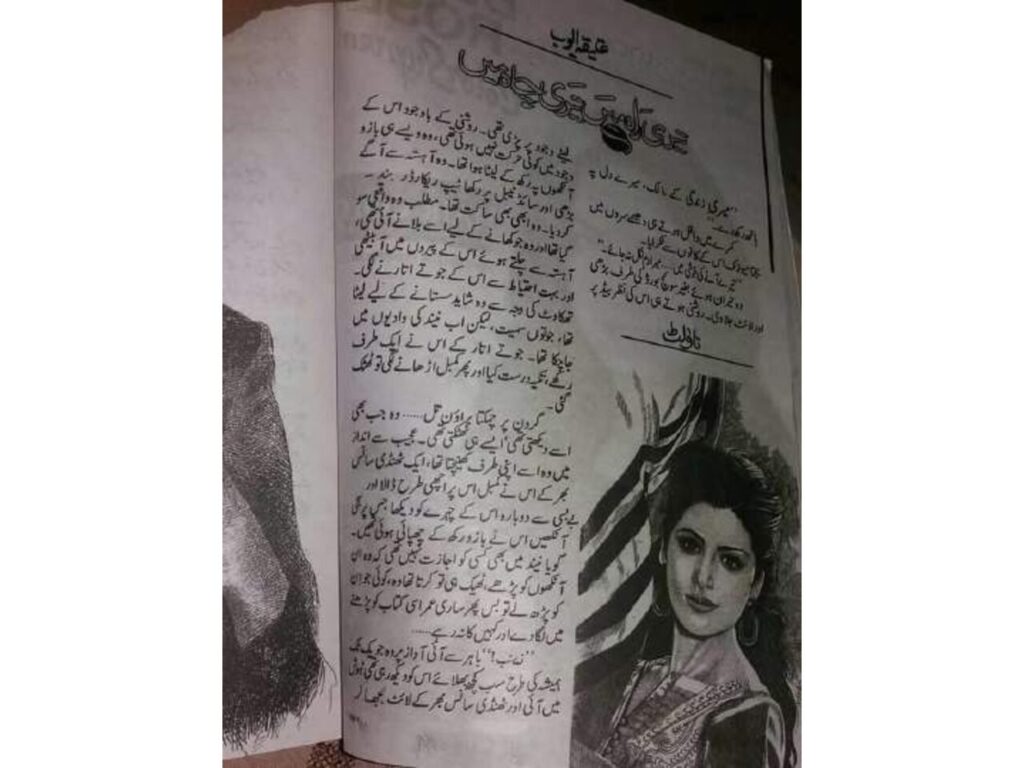 عتیقہ ایوب
تیری راہ میں تیری چاہ میں
”میری زندگی کے مالک، میرے دل پہ
ہاتھ رکھ دے۔“
کمرے میں داخل ہوتے ہی دھیمے سروں میں
بجتا میوزک اس کے کانوں سے ٹکرایا۔
”تیرے آنے کی خوشی میں، میرا دم نکل نہ جائے۔“
وہ حیران ہوئے بغیر سوئچ بورڈ کی طرف بڑھی
اور لائٹ جلا دی۔ روشنی ہوتے ہی اس کی نظر بیڈ پر
ناولٹ
لیٹے وجود پر پڑی تھی۔ روشنی کے باوجود اس کے
وجود میں کوئی حرکت نہیں ہوئی تھی، وہ ویسے ہی بازو
آنکھوں پہ رکھ کے لیٹا ہوا تھا۔ وہ آہستہ سے آگے
بڑھی اور سائڈ ٹیبل پر رکھا ٹیپ ریکارڈر بند
کر دیا۔ وہ ابھی بھی ساکت تھا۔ مطلب وہ واقعی سو
گیا تھا اور وہ جو کھانے کے لیے اسے بلانے آئی تھی،
آہستہ سے چلتے ہوئے اس کے پیروں میں آ بیٹھی
اور بہت احتیاط سے اس کے جوتے اتارنے لگی۔
تھکاوٹ کی وجہ سے وہ شاید سستانے کے لیے لیٹا
تھا، جوتوں سمیت، لیکن اب نیند کی وادیوں میں
جا چکا تھا۔ جوتے اتار کے اس نے ایک طرف
رکھے، تکیہ درست کیا اور پھر کمبل اڑھانے لگی تو ٹھٹک
گئی۔
گردن پر چمکتا براؤن تل...... وہ جب بھی
اسے دیکھتی تھی ایسے ہی ٹھٹکتی تھی۔ عجیب سے انداز
میں وہ اسے اپنی طرف کھینچتا تھا، ایک ٹھنڈی سانس
بھر کے اس نے کمبل اس پر اچھی طرح ڈالا اور
بے بسی سے دوبارہ اس کے چہرے کو دیکھا جس پر لگی
آنکھیں اس نے بازو رکھ کے چھپائی ہوئی تھیں۔
گویا نیند میں بھی کسی کو اجازت نہیں تھی کہ وہ ان
آنکھوں کو پڑھے، ٹھیک ہی تو کرتا تھا وہ، کوئی جو ان
کو پڑھ لے تو بس پھر ساری عمر اسی کتاب کو پڑھنے
میں لگا دے اور کہیں کا نہ رہے......
”زینب!“ باہر سے آئی آواز پر وہ جو یک ٹک
ہمیشہ کی طرح سب کچھ بھلائے اس کو دیکھ رہی تھی ہوش
میں آئی اور ٹھنڈی سانس بھر کے لائٹ بجھا کر